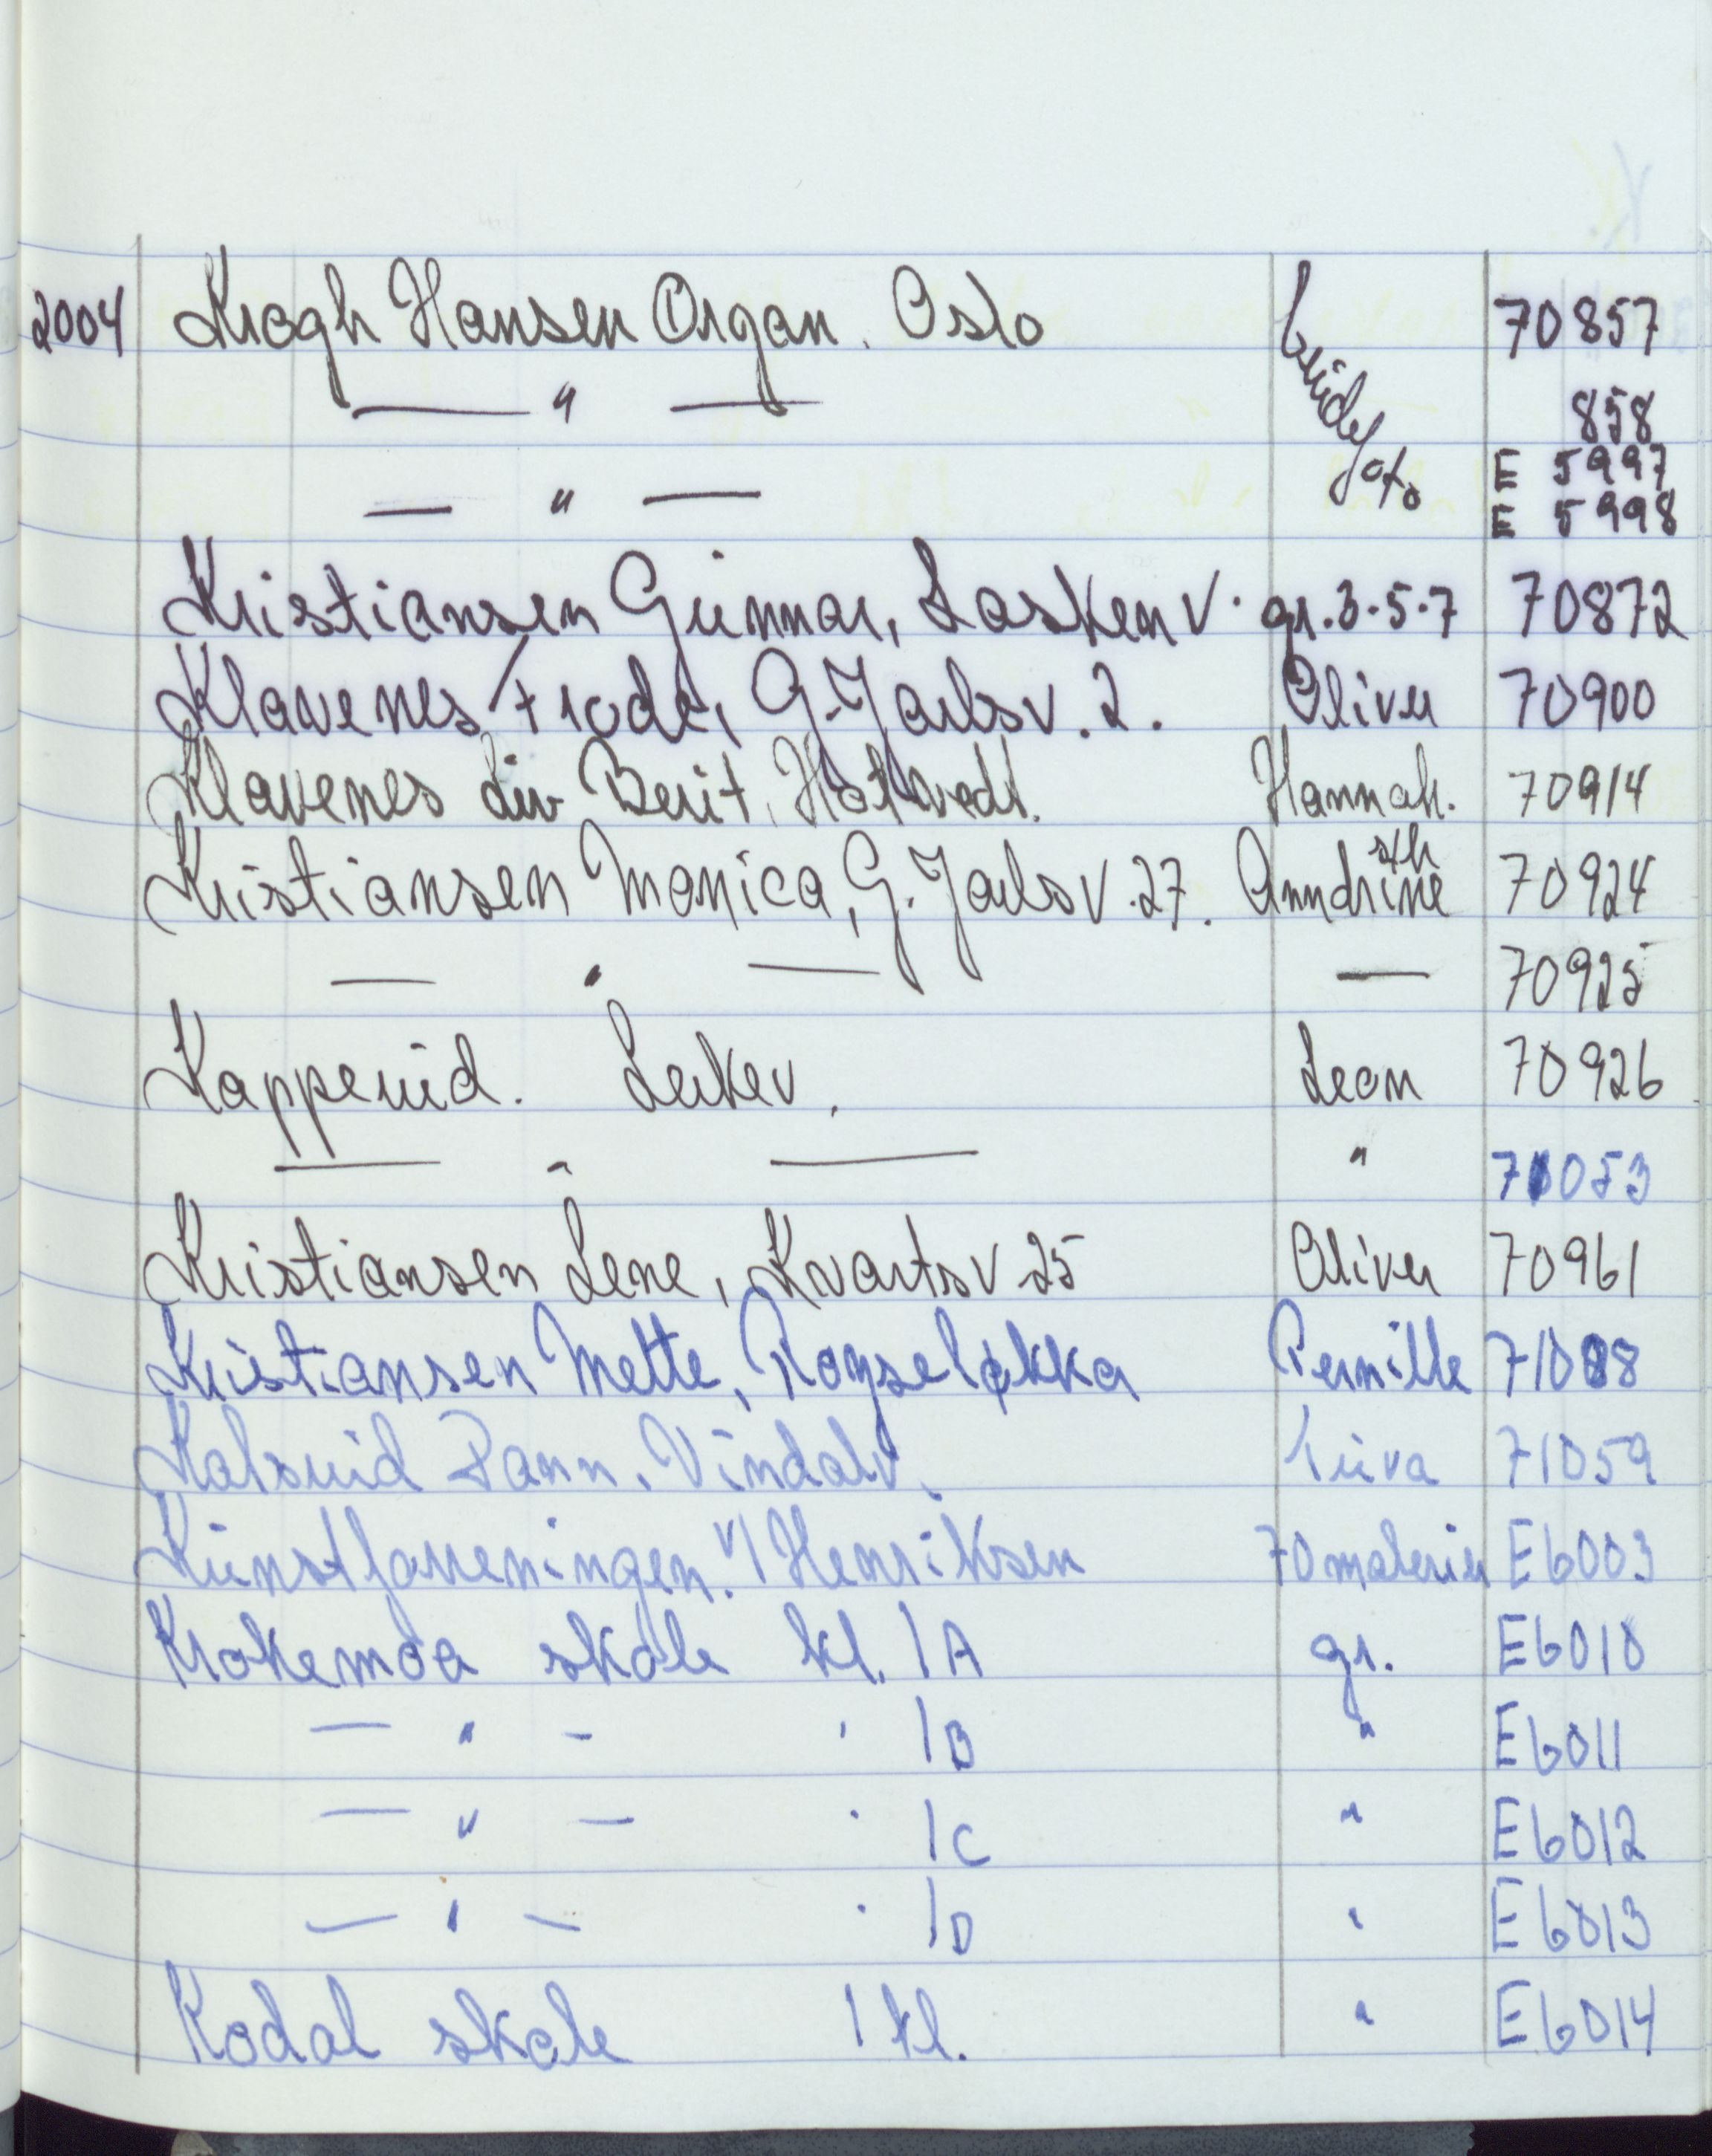 2004 Krogh Hansen Organ. Oslo 70857
— " — 858
— " — E 5997
E 5998
Kristiansen Gunnar, Lasken V. gr. 3-5-7 70872
Klavenes Frode, G. Jarlsv. 2. Oliver 70900
Klavenes Liv Berit, Hotvedt. Hannah. 70914
Kristiansen Monica, G. Jarlsv. 27. Anndrine 70924
— " — — 70925
Kappenid. Leikev. Leon 70926
— " — " 71053
Kristiansen Lene, Kvartsv 25 Oliver 70961
Kristiansen Mette, Røyseløkka Pernille 71088
Vindalv. 71059
Kunstforeningen v/ Henriksen 70 malerier E6003
Krokemoa skole kl. 1A gr. E6010
— " – ' 1B " E6011
— " — ' 1C " E6012
— " – ' 1D " E6013
Kodal skole 1 kl. " E6014